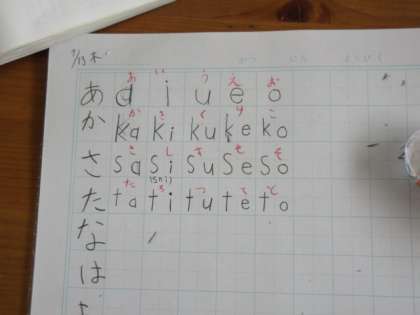 7/13 木
あ い う え お
あ a i u e o
か き く け こ
か ka ki ku ke ko
さ し す せ そ
さ sa si su se so
(shi)
た ち つ て と
た ta ti tu te to
な
は